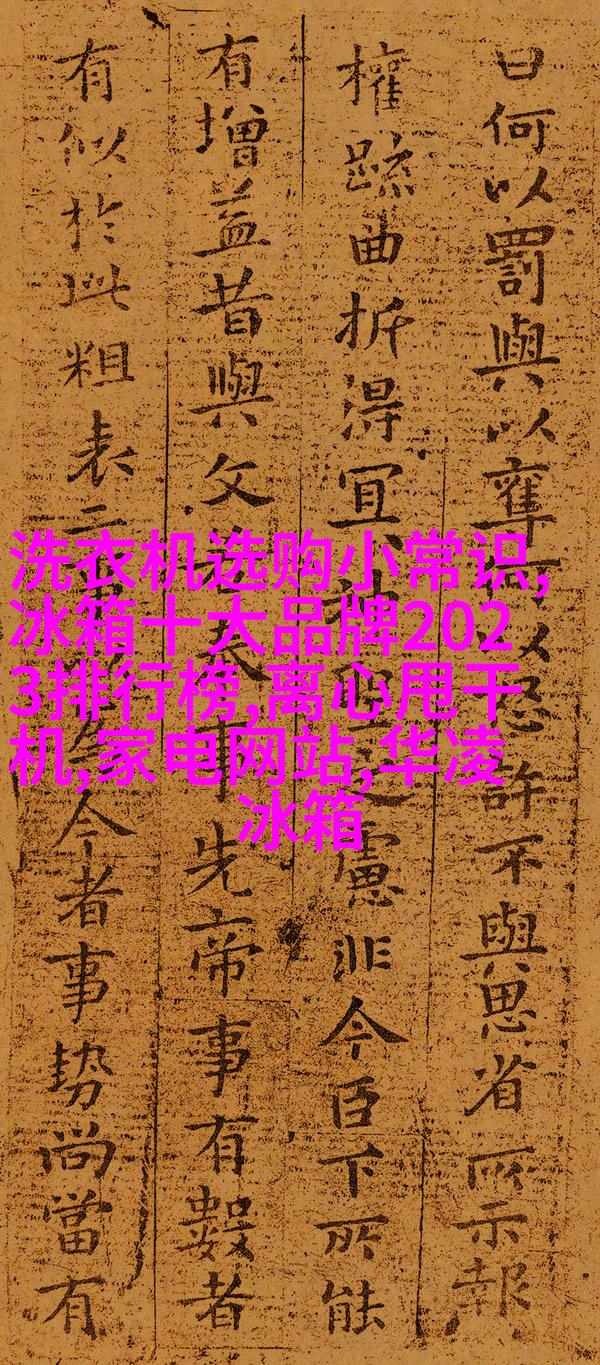 曰何以罰與以奪何以怒許不與思省所示報
權疏曲折得冝神聖之慮非今臣下所能
有增益昔與文奉先帝事有數者
有似於此粗表二今者事勢尚當有
洗衣机选购小常识,
冰箱十大品牌202
3排行榜,离心甩干
机,家电网站,华凌
冰箱